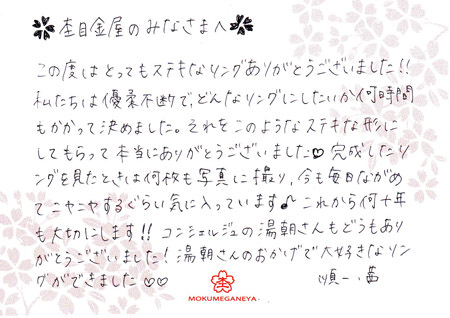 ✽杢目金屋のみなさまへ✽
この度はとってもステキなリングありがとうございました!!
私たちは優柔不断で、どんなリングにしたいか何時間
もかかって決めました。それをこのようなステキな形に
してもらって本当にありがとうございました♡完成したリ
ングを見たときは何枚も写真に撮り、今も毎日ながめ
てニヤニヤするぐらい気に入っています♪これから何十年
も大切にします!!コンシェルジュの湯朝さんもどうもあり
がとうございました!湯朝さんのおかげで大好きなリン
グができました♡♡
順一・茜
MOKUMEGANEYA